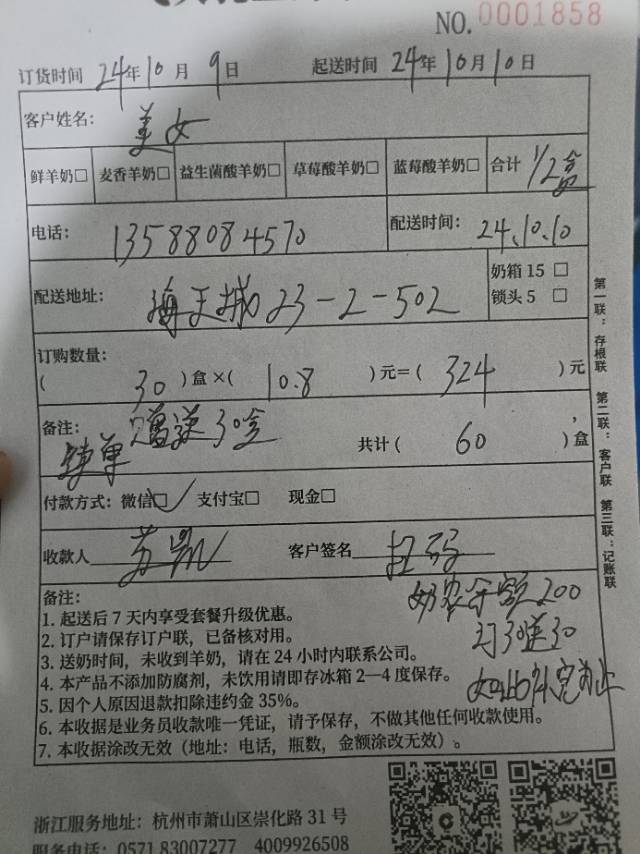 NO. 0001858
订货时间 24年10月9日 起送时间 24年10月10日
客户姓名: 美女
鲜羊奶□ 麦香羊奶□ 益生菌酸羊奶□ 草莓酸羊奶□ 蓝莓酸羊奶□ 合计 1/2盒
电话: 13588084570 配送时间: 24.10.10
配送地址: 海天城23-2-502 奶箱 15 □
锁头 5 □
订购数量:
( 30 )盒×( 10.8 )元=( 324 )元
备注: 赠送30盒
续单 共计( 60 )盒
付款方式: 微信☑ 支付宝□ 现金□
收款人 苏凯 客户签名 扫码
奶农余额200
订30送30
备注:
1. 起送后 7 天内享受套餐升级优惠。
2. 订户请保存订户联，已备核对用。
3. 送奶时间，未收到羊奶，请在 24 小时内联系公司。
4. 本产品不添加防腐剂，未饮用请即存冰箱 2—4 度保存。
5. 因个人原因退款扣除违约金 35%。
6. 本收据是业务员收款唯一凭证，请予保存，不做其他任何收款使用。
7. 本收据涂改无效（地址：电话，瓶数，金额涂改无效）。
第一联：存根联 第二联：客户联 第三联：记账联
浙江服务地址：杭州市萧山区崇化路 31 号
服务电话：0571 83007277 4009926508